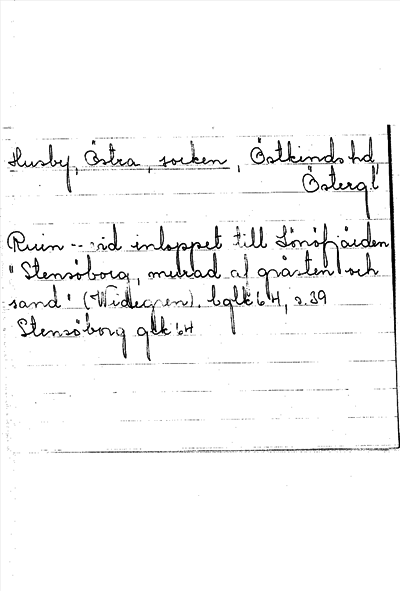 Husby, Östra, socken, Östkinds hd
Östergl
Ruin -- vid inloppet till Lönöfjärden
"Stensöborg, murad af gråsten och
sand" (Widegren). bglk 64, s. 39
Stensöborg glk 64